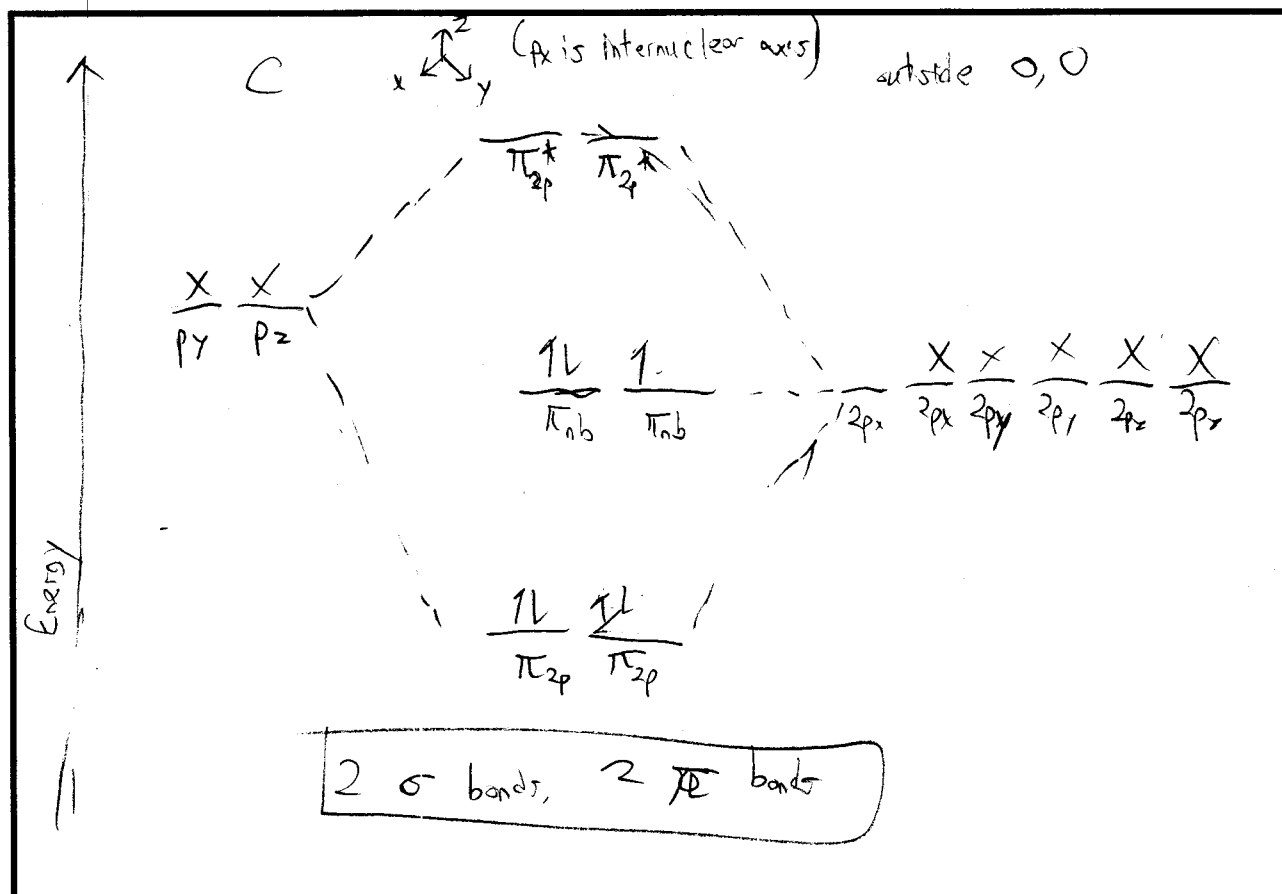 C z x y (px is internuclear axis) outside O, O
π2p* π2p*
X X
py pz
1L 1
πnb πnb
X X X X X
2px 2px 2py 2py 2pz 2pz
Energy
1L 1L
π2p π2p
2 σ bonds, 2 π bonds